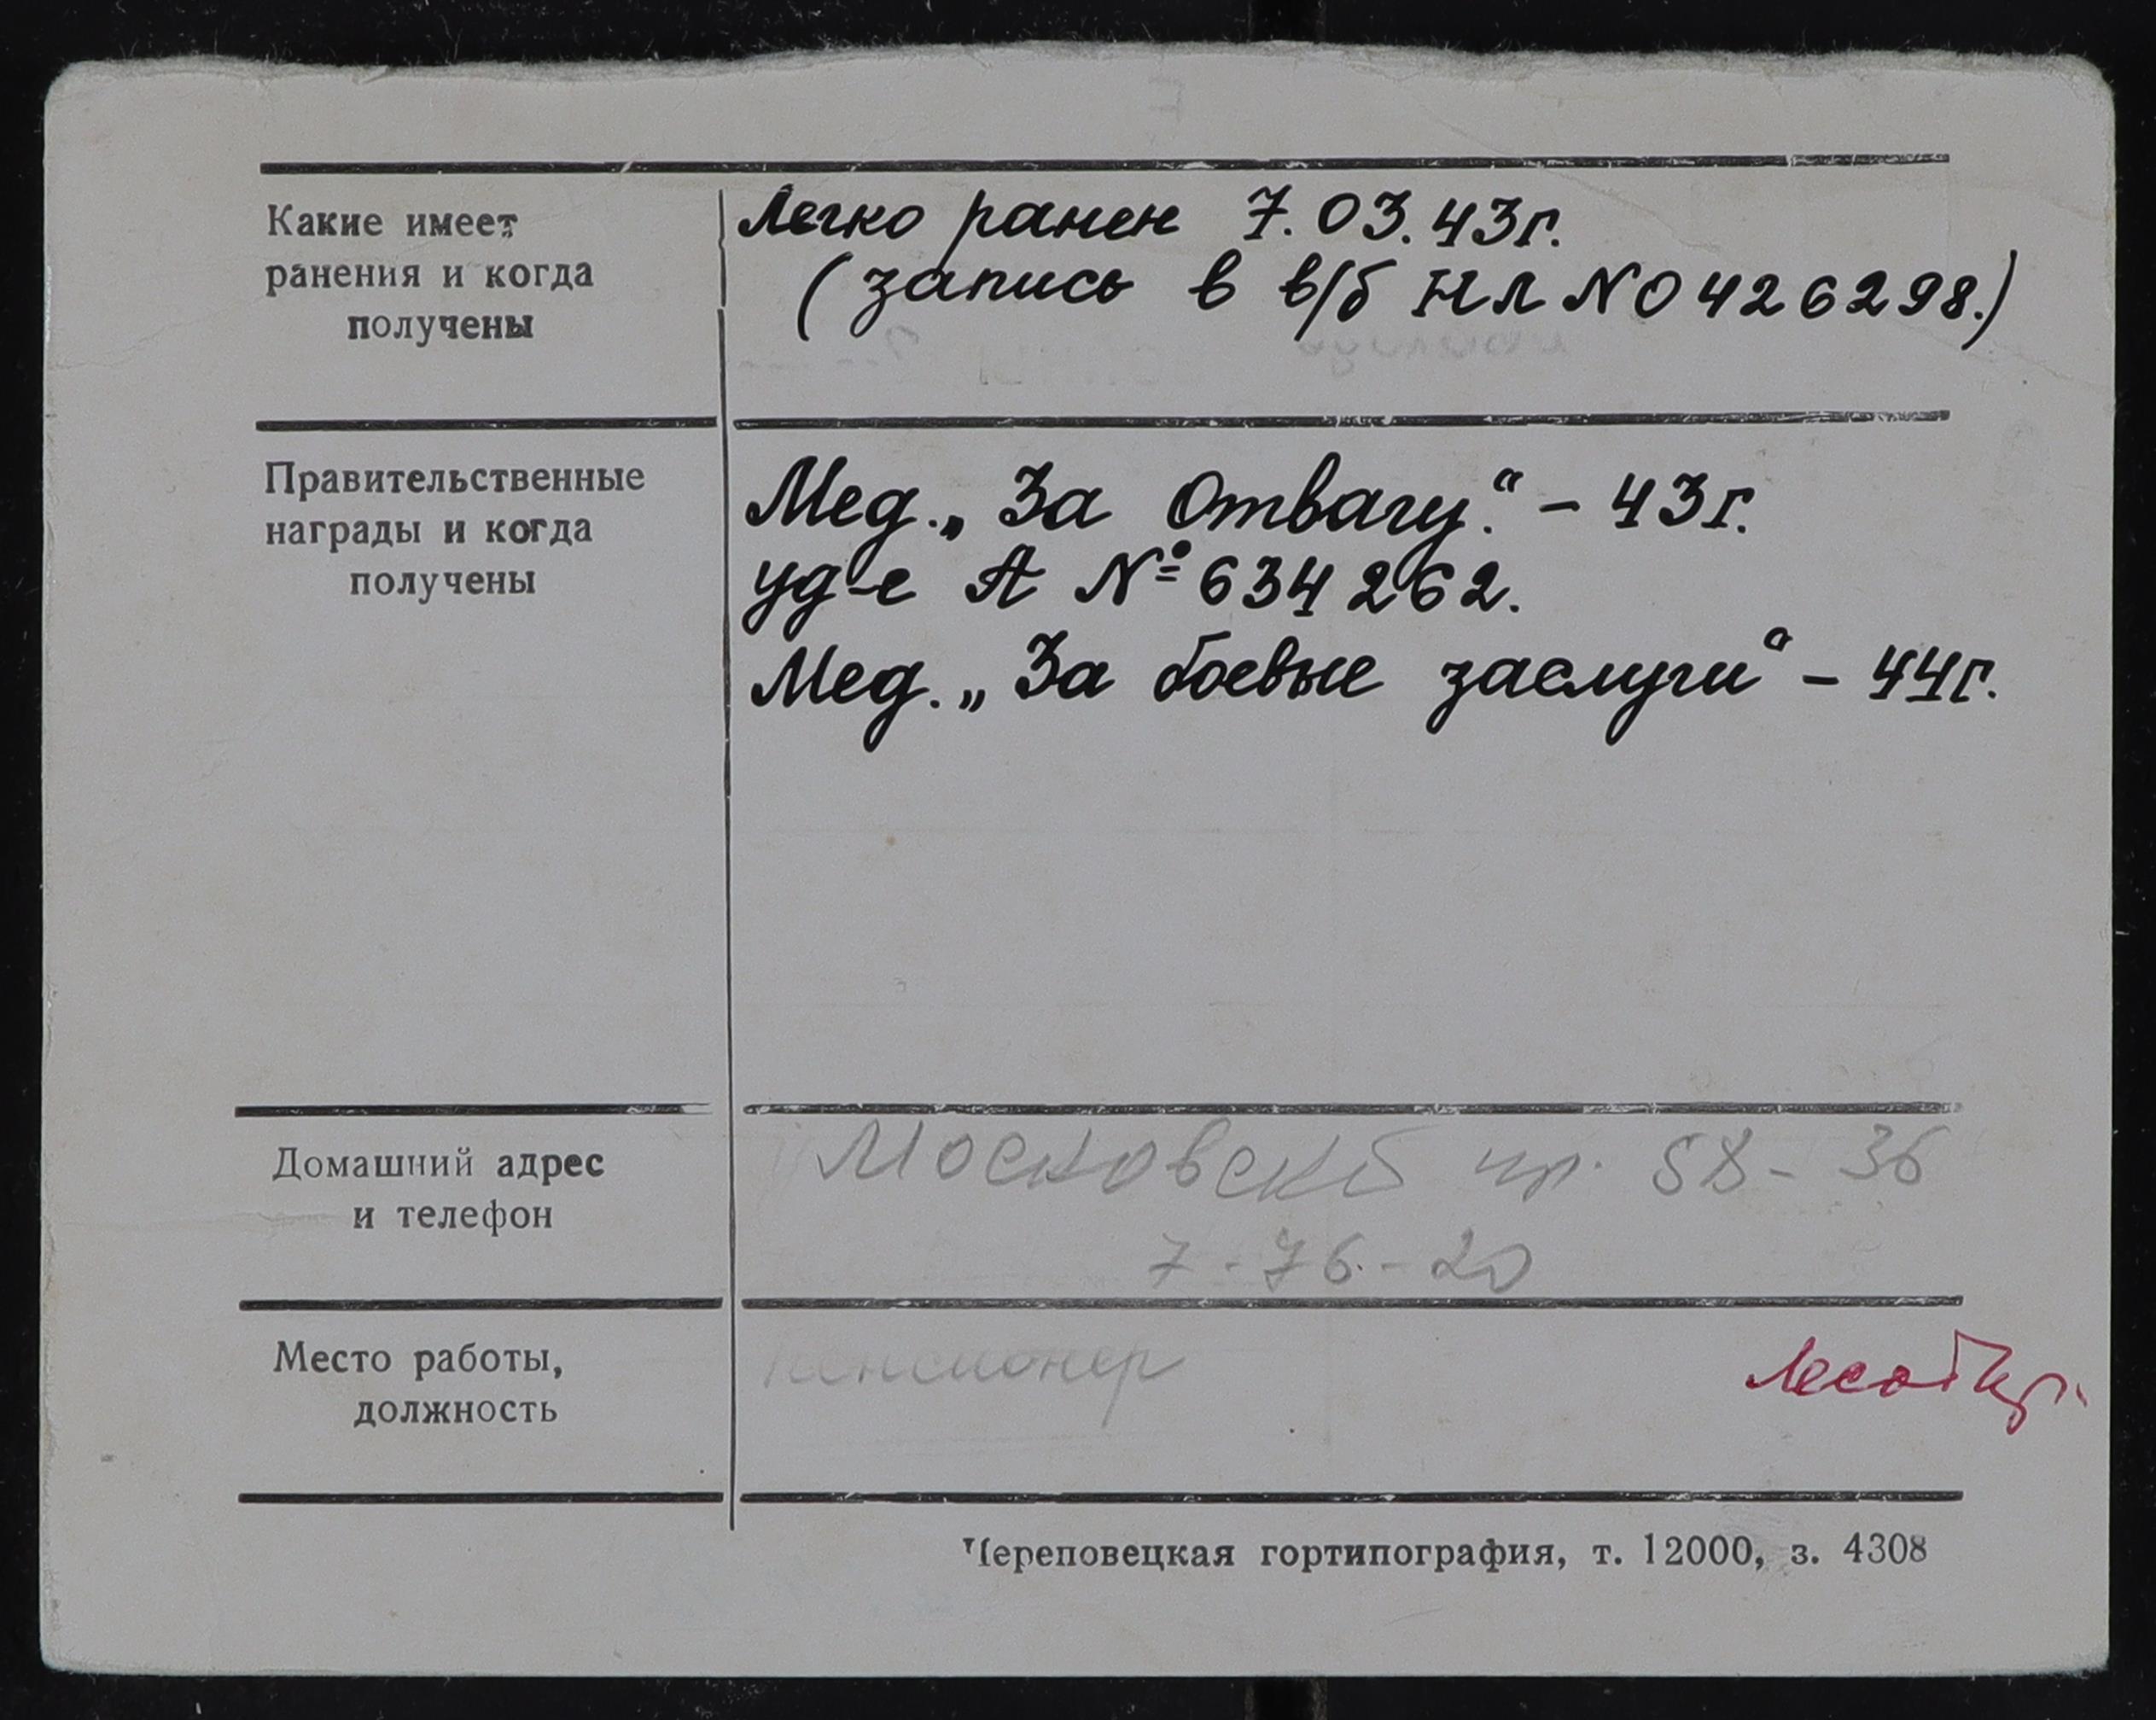 Какие имеет
ранения и когда
получены
Легко ранен 7.03.43г.
(запись в в/б НЛ N0426298.)
Правительственные
награды и когда
получены
Мед. „За Отвагу.“ – 43г.
уд-е А № 634262.
Мед. „За боевые заслуги“ – 44г.
Домашний адрес
и телефон
Московск пр. 58 - 36
7-76-20
Место работы,
должность
пенсионер
Череповецкая гортипография, т. 12000, з. 4308